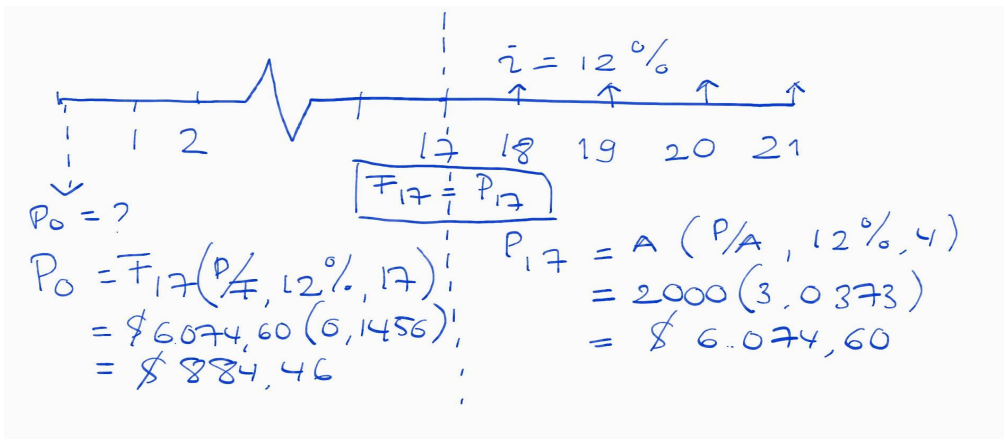 i = 12 %
1 2 17 18 19 20 21
F17 = P17
P0 = ?
P0 = F17(P/F, 12%, 17)
= $ 6.074,60 (0,1456)
= $ 884,46
P17 = A (P/A, 12%, 4)
= 2000 (3,0373)
= $ 6..074,60